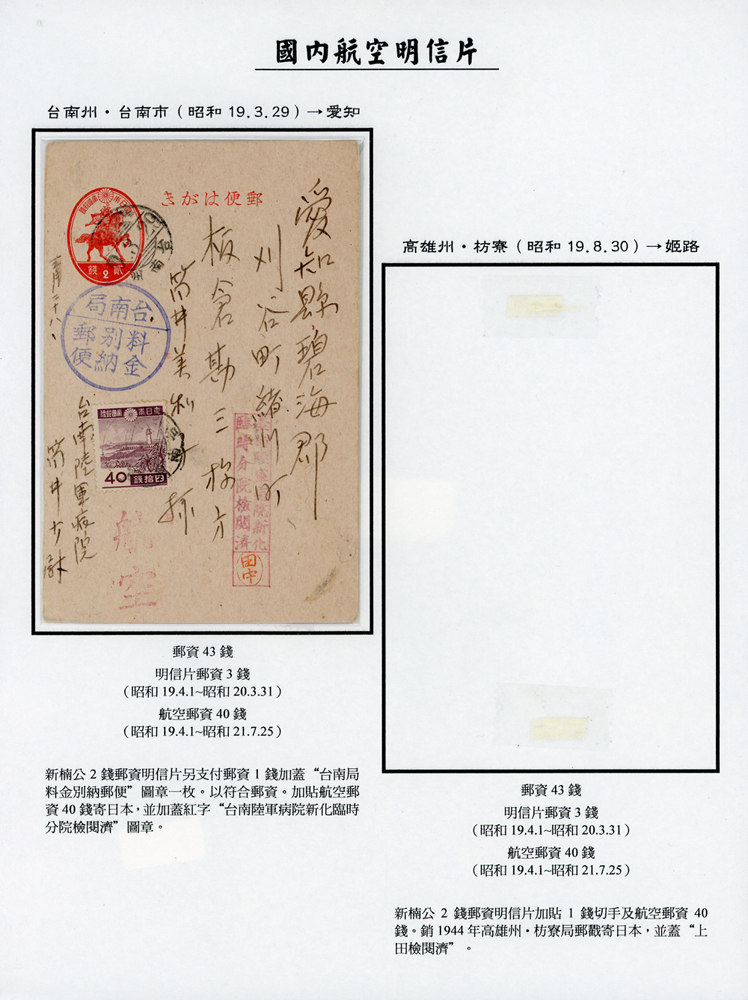 國內航空明信片
台南州・台南市（昭和 19.3.29）→愛知
郵便はがき
貳 2 錢
三月二十八日
台南局
料金
別納
郵便
愛知縣碧海郡
刈谷町緒川町
板倉勘三様方
筒井美
大日本帝國郵便
40
四拾錢
台南陸軍病院
筒井少尉
航空
臨時分院檢閱濟
田中
郵資 43 錢
明信片郵資 3 錢
（昭和 19.4.1~昭和 20.3.31）
航空郵資 40 錢
（昭和 19.4.1~昭和 21.7.25）
新楠公 2 錢郵資明信片另支付郵資 1 錢加蓋“台南局
料金別納郵便”圖章一枚。以符合郵資。加貼航空郵
資 40 錢寄日本，並加蓋紅字“台南陸軍病院新化臨時
分院檢閱濟”圖章。
高雄州・枋寮（昭和 19.8.30）→姬路
郵資 43 錢
明信片郵資 3 錢
（昭和 19.4.1~昭和 20.3.31）
航空郵資 40 錢
（昭和 19.4.1~昭和 21.7.25）
新楠公 2 錢郵資明信片加貼 1 錢切手及航空郵資 40
錢。銷 1944 年高雄州・枋寮局郵戳寄日本，並蓋“上
田檢閱濟”。